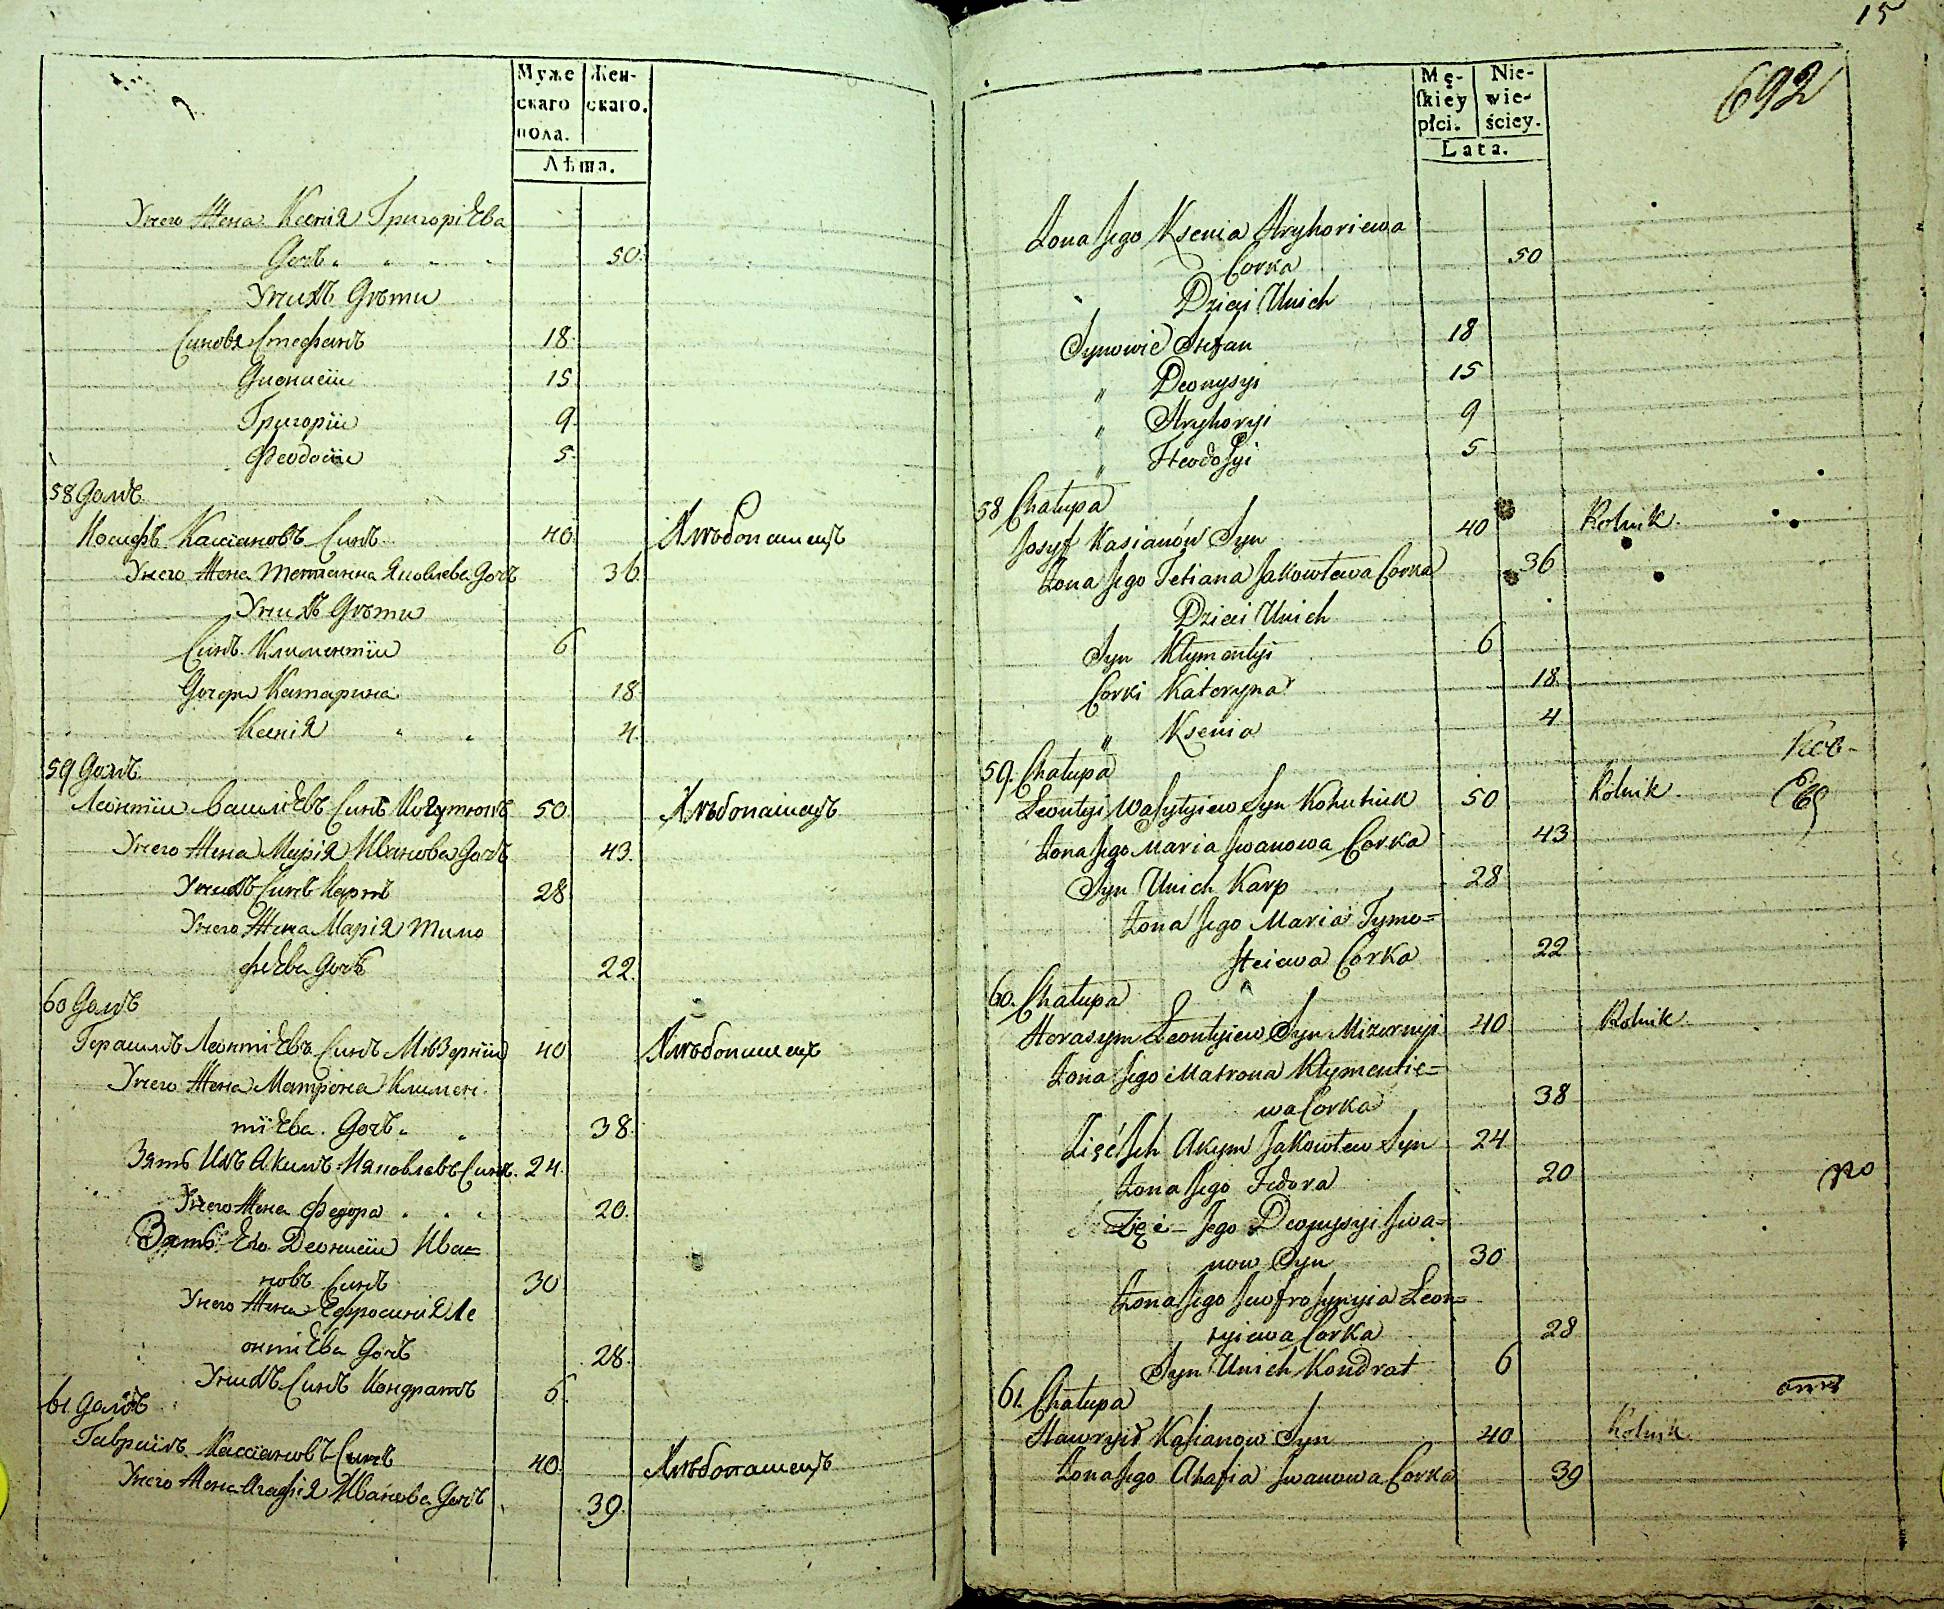 Муже
скаго
пола.
Жен-
скаго.
Лѣта.
Унего Жена Ксенія Григоріева
Дочь 50
Унихъ Дѣти
Синовя Стефанъ 18
Дионисіи 15
Григоріи 9
Феодосіи 5
58 Домъ
Иосифъ Кассіановъ Синъ 40 Хлѣбопашецъ
Унего Жена Тетянна Яковлева Дочь 36
Унихъ Дѣти
Синъ Климентіи 6
Дочери Катарина 18
Ксенія 4
59 Домъ
Леонтіи Василіевъ Синъ Когутюкъ 50 Хлѣбопашецъ
Унего Жена Марія Иванова Дочь 43
Унихъ Синъ Карпъ 28
Унего Жена Марія Тимо
фѣева Дочь 22
60 Домъ
Герасимъ Леонтіевъ Синъ Мѣзерніи 40 Хлѣбопашецъ
Унего Жена Матрона Климен
тіева Дочь 38
Зять Ихъ Акимъ Яковлевъ Синъ 24
Унего Жена Федора 20
Зять Его Деонисіи Ива=
новъ Синъ 30
Унего Жена Ефросинія Ле
онтіева Дочь 28
Унихъ Синъ Кондратъ 6
61 Домъ
Гавріилъ Кассіановъ Синъ 40 Хлѣбопашецъ
Унего Жена Агафія Иванова Дочь 39
15
692
Mę-
skiey
płci.
Nie-
wie-
ściey.
Lata.
Żona Jego Ksenia Hryhoriewa
Corka 50
Dzieci Unich
Synowié Stefan 18
" Deonysyi 15
" Hryhoryi 9
" Fteodosyi 5
58 Chałupa
Josyf Kasianów Syn 40 Rolnik.
Żona Jego Tetiana Jakowlewa Corka 36
Dzieci Unich
Syn Kłymentyi 6
Corki Kateryna 18
" Ksenia 4
59. Chałupa
Leontyi Wasylyiew Syn Kohutiuk 50 Rolnik.
Żona Jego Maria Jwanowa Corka 43
Syn Unich Karp 28
Żona Jego Maria Tymo=
fteiewa Corka 22
60. Chałupa
Herasym Leontyiew Syn Mizernyi 40 Rolnik.
Żona Jego Matrona Kłymentie=
wa Corka 38
Zięć Jch Akym Jakowlew Syn 24
Żona Jego Fedora 20
Zięć Jego Deonysyi Jwa=
now Syn 30
Żona Jego Jewfrosynyia Leon=
tyiewa Corka 28
Syn Unich Kondrat 6
61. Chałupa
Hawryił Kasianow Syn 40 Rolnik.
Żona Jego Ahafia Jwanowa Corka 39
по